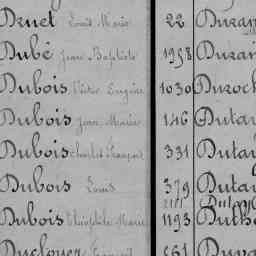 Druet Louis Marie 22 Duran
Dubé Jean Baptiste 1958 Duran
Dubois Victor Eugène 1030 Duroch
Dubois Jean Marie 146 Dutar
Dubois Charles François 331 Dutar
Dubois Louis 379 Dutar
Dubois Théophile Marie 1193
François 661